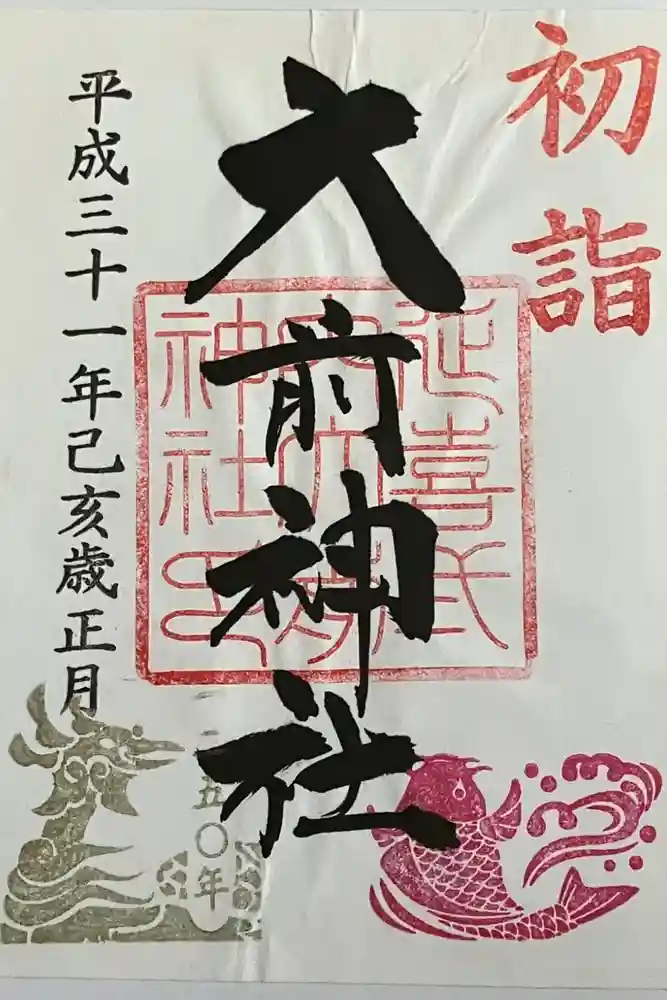 初詣
大前神社
延喜式
内大前
神社印
平成三十一年己亥歳正月
一二五〇年